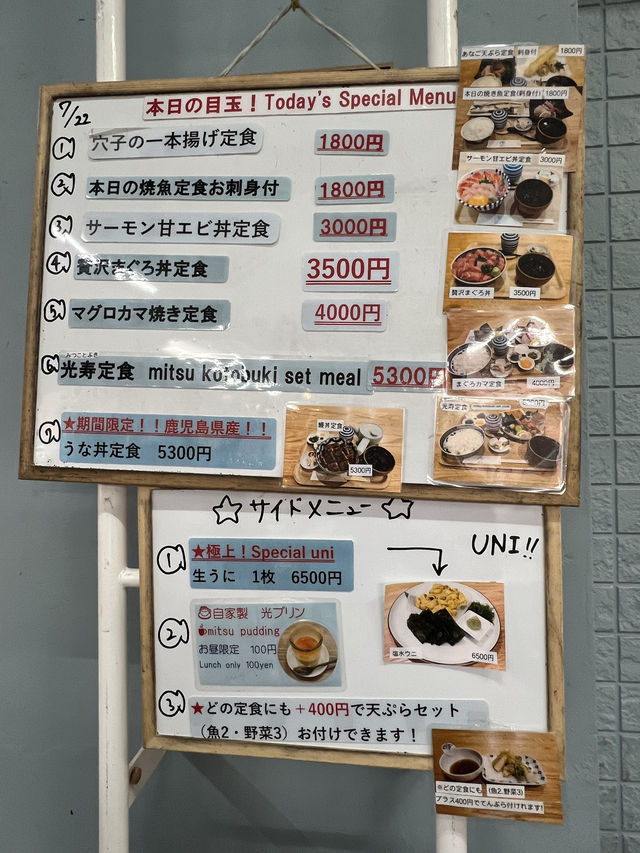 7/22
本日の目玉！Today's Special Menu
① 穴子の一本揚げ定食 1800円
② 本日の焼魚定食お刺身付 1800円
③ サーモン甘エビ丼定食 3000円
④ 贅沢まぐろ丼定食 3500円
⑤ マグロカマ焼き定食 4000円
みつことぶき
⑥ 光寿定食 mitsu kotobuki set meal 5300円
⑦ ★期間限定！！鹿児島県産！！
うな丼定食 5300円
あなご天ぷら定食 刺身付 1800円
本日の焼き魚定食(刺身付) 1800円
サーモン甘エビ丼定食 3000円
贅沢まぐろ丼 3500円
まぐろカマ定食 4000円
光寿定食 5300円
鰻丼定食
5300円
☆サイドメニュー☆
① ★極上！Special uni
生うに 1枚 6500円
UNI!!
塩水ウニ 6500円
② 自家製 光プリン
mitsu pudding
お昼限定 100円
Lunch only 100yen
③ ★どの定食にも＋400円で天ぷらセット
（魚2・野菜3）お付けできます！
※どの定食にも (魚2.野菜3)
プラス400円でてんぷら付けれます!